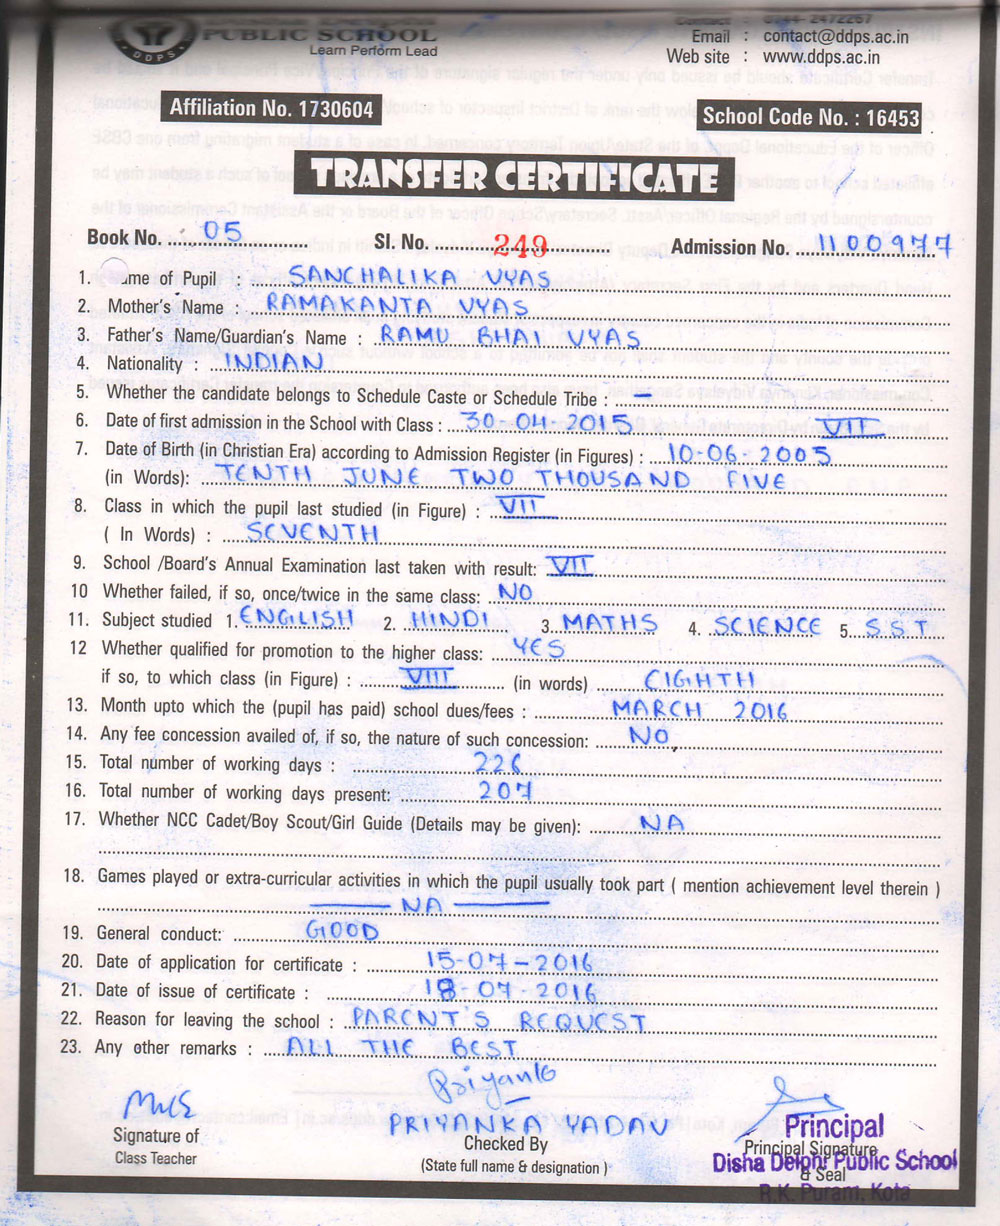 PUBLIC SCHOOL
DDPS
Learn Perform Lead
Contact : 0744-2472267
Email : contact@ddps.ac.in
Web site : www.ddps.ac.in
Affiliation No. 1730604
School Code No. : 16453
TRANSFER CERTIFICATE
Book No. 05 Sl. No. 249 Admission No. 1100977
1. me of Pupil SANCHALIKA VYAS
2. Mother's Name : RAMAKANTA VYAS
3. Father's Name/Guardian's Name : RAMU BHAI VYAS
4. Nationality : INDIAN
5. Whether the candidate belongs to Schedule Caste or Schedule Tribe : –
6. Date of first admission in the School with Class : 30-04-2015 VII
7. Date of Birth (in Christian Era) according to Admission Register (in Figures) : 10-06-2005
(in Words): TENTH JUNE TWO THOUSAND FIVE
8. Class in which the pupil last studied (in Figure) : VII
( In Words) : SEVENTH
9. School /Board's Annual Examination last taken with result: VII
10 Whether failed, if so, once/twice in the same class: NO
11. Subject studied 1. ENGLISH 2. HINDI 3. MATHS 4. SCIENCE 5. SST
12 Whether qualified for promotion to the higher class: YES
if so, to which class (in Figure) : VIII (in words) EIGHTH
13. Month upto which the (pupil has paid) school dues/fees : MARCH 2016
14. Any fee concession availed of, if so, the nature of such concession: NO
15. Total number of working days : 226
16. Total number of working days present: 207
17. Whether NCC Cadet/Boy Scout/Girl Guide (Details may be given): NA
18. Games played or extra-curricular activities in which the pupil usually took part ( mention achievement level therein )
NA
19. General conduct: GOOD
20. Date of application for certificate : 15-07-2016
21. Date of issue of certificate : 18-07-2016
22. Reason for leaving the school : PARENT'S REQUEST
23. Any other remarks : ALL THE BEST
Priyanka
PRIYANKA YADAV
Signature of
Class Teacher
Checked By
(State full name & designation )
Principal
Principal Signature
& Seal
Disha Delphi Public School
R.K. Puram, Kota